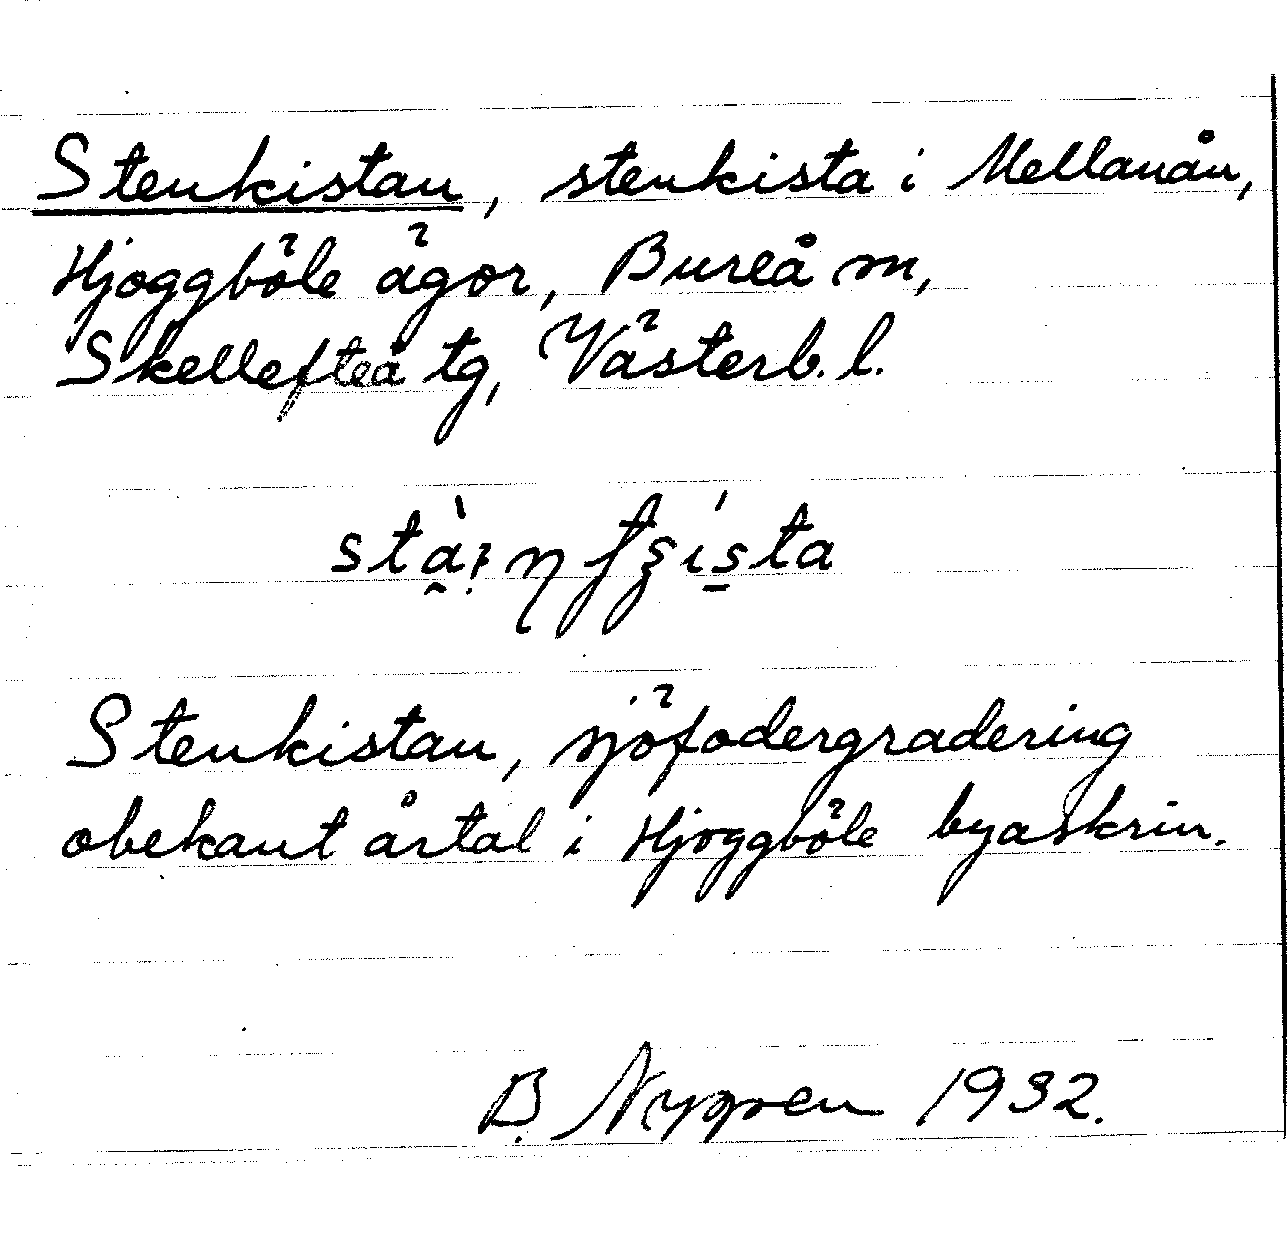 Stenkistan, stenkista i Mellanån,
Hjoggböle ägor, Bureå sn,
Skellefteå tg, Västerb. l.
Stenkistan, sjöfodergradering
obekant årtal i Hjoggböle byaskrin.
B. Nygren 1932.